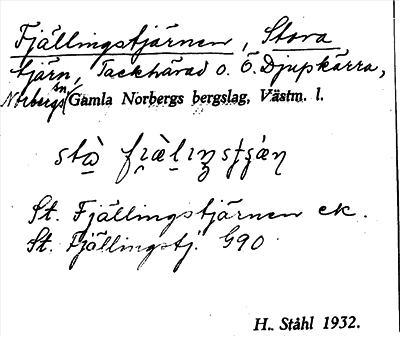 Fjällingstjärnen, Stora
tjärn, Tackhärad o. Ö. Djupkärra,
Norbergs sn, Gamla Norbergs bergslag, Västm. l.
St. Fjällingstjärnen ek.
St. Fjällingstj. G90
H. Ståhl 1932.